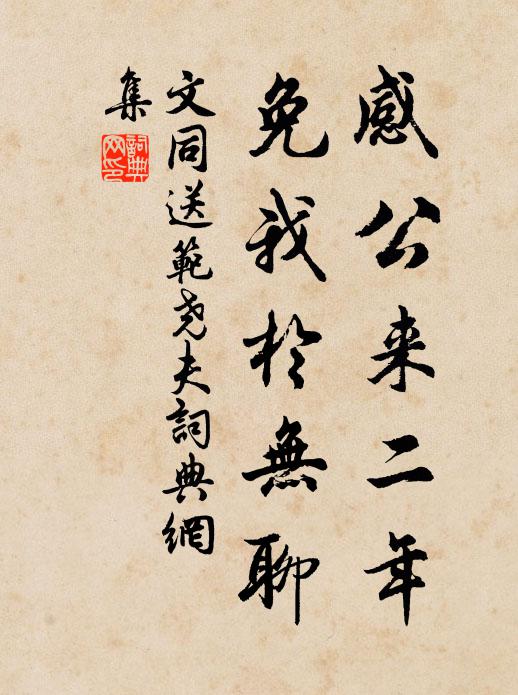 感公来二年
免我於無聊
文同送範尧夫詞典網
集
詞典網印